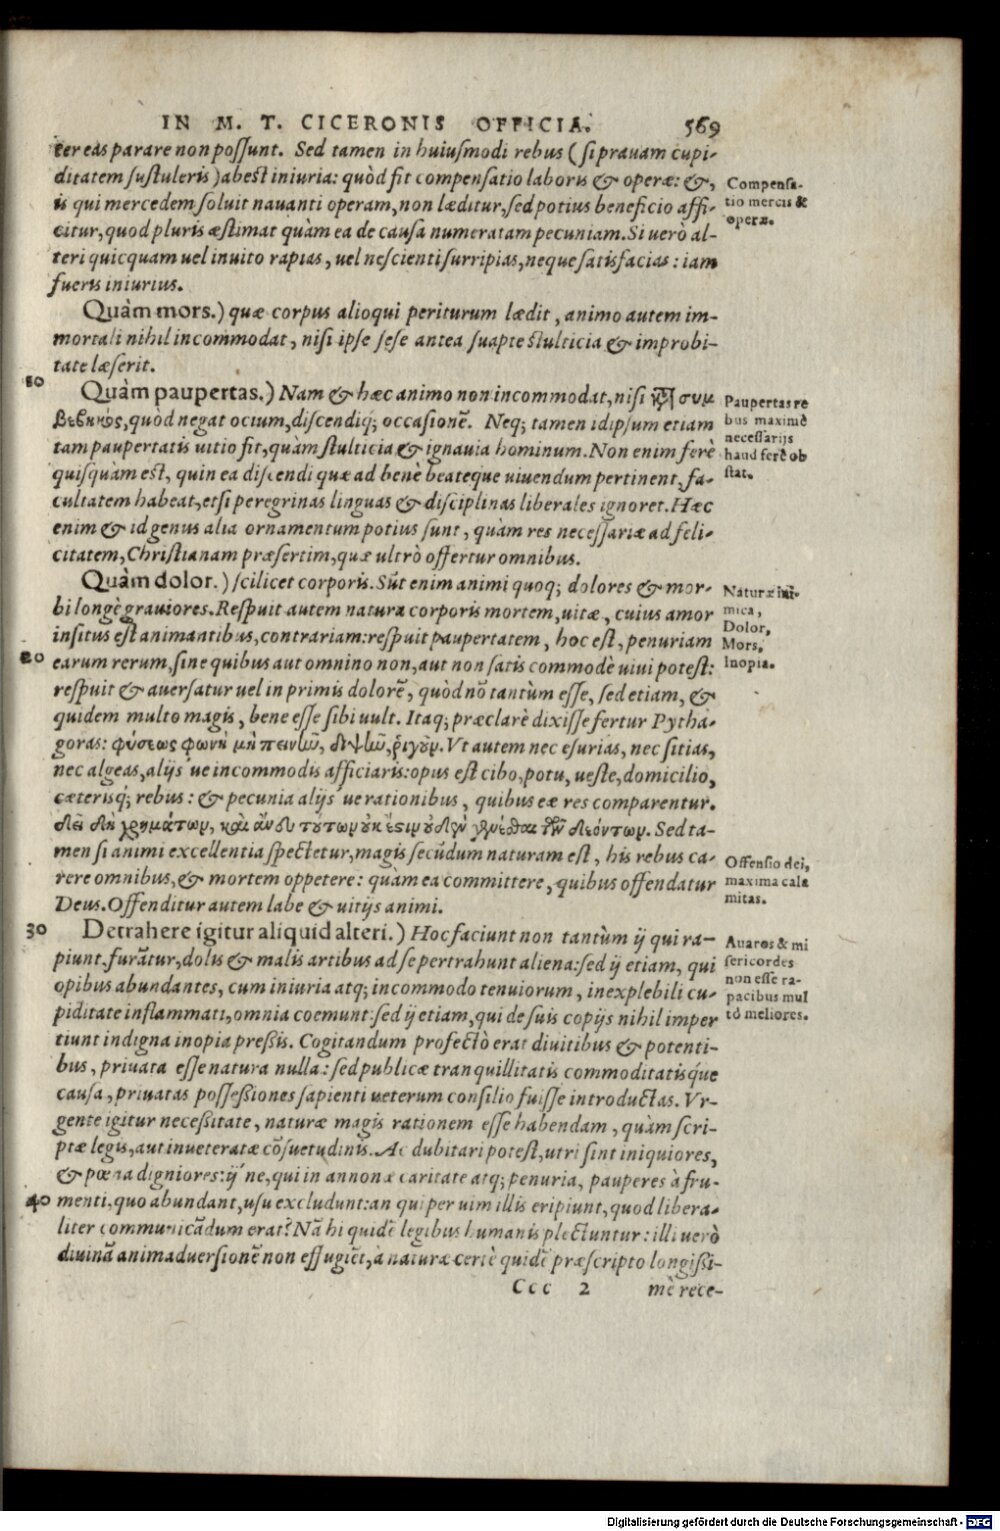 IN M. T. CICERONIS OFFICIA. 569
ter eas parare non possunt. Sed tamen in huiusmodi rebus (si prauam cupi-
ditatem sustuleris) abest iniuria: quòd fit compensatio laboris & operæ: &,
is qui mercedem soluit nauanti operam, non læditur, sed potius beneficio affi-
citur, quod pluris æstimat quàm ea de causa numeratam pecuniam. Si uerò al-
teri quicquam uel inuito rapias, uel nescienti surripias, neque satisfacias: iam
fueris iniurius.
Compensa-
tio mercis &
operæ.
Quàm mors.) quæ corpus alioqui periturum lædit, animo autem im-
mortali nihil incommodat, nisi ipse sese antea suapte stulticia & improbi-
tate læserit.
10
Quàm paupertas.) Nam & hæc animo non incommodat, nisi κτ̃ συμ
βεβηκός, quòd negat ocium, discendiq; occasionẽ. Neq; tamen id ipsum etiam
tam paupertatis uitio fit, quàm stulticia & ignauia hominum. Non enim ferè
quisquàm est, quin ea discendi quæ ad benè beateque uiuendum pertinent, fa-
cultatem habeat, etsi peregrinas linguas & disciplinas liberales ignoret. Hæc
enim & id genus alia ornamentum potius sunt, quàm res necessariæ ad feli-
citatem, Christianam præsertim, quæ ultrò offertur omnibus.
Paupertas re
bus maximè
necessarijs
haud ferè ob
stat.
Quàm dolor.) scilicet corporis. Sũt enim animi quoq; dolores & mor-
bi longè grauiores. Respuit autem natura corporis mortem, uitæ, cuius amor
insitus est animantibus, contrariam: respuit paupertatem, hoc est, penuriam
20
earum rerum, sine quibus aut omnino non, aut non satis commodè uiui potest:
respuit & auersatur uel in primis dolorẽ, quòd nõ tantùm esse, sed etiam, &
quidem multo magis, bene esse sibi uult. Itaq; præclarè dixisse fertur Pytha-
goras: φύσεως φωνὴ μὴ πεινῶ͂, διψῶ͂, ῥιγοῦν. Vt autem nec esurias, nec sitias,
nec algeas, alijs´ue incommodis afficiaris: opus est cibo, potu, ueste, domicilio,
cæterisq́; rebus: & pecunia alijs´ue rationibus, quibus eæ res comparentur.
δεῖ δὴ χρημάτων, καὶ ἄνευ τούτων οὐκ ἔστιν οὐδὲν γενέσθαι τῶν δεόντων. Sed ta-
men si animi excellentia spectetur, magis secũdum naturam est, his rebus ca-
rere omnibus, & mortem oppetere: quàm ea committere, quibus offendatur
Deus. Offenditur autem labe & uitijs animi.
Naturæ ini-
mica,
Dolor,
Mors,
Inopia.
Offensio dei,
maxima cala
mitas.
30
Detrahere igitur aliquid alteri.) Hoc faciunt non tantùm ij qui ra-
piunt, furãtur, dolis & malis artibus ad se pertrahunt aliena: sed ij etiam, qui
opibus abundantes, cum iniuria atq; incommodo tenuiorum, inexplebili cu-
piditate inflammati, omnia coemunt: sed ij etiam, qui de suis copijs nihil imper
tiunt indigna inopia pressis. Cogitandum profectò erat diuitibus & potenti-
bus, priuata esse natura nulla: sed publicæ tranquillitatis commoditatisq́ue
causa, priuatas possessiones sapienti ueterum consilio fuisse introductas. Vr-
gente igitur necessitate, naturæ magis rationem esse habendam, quàm scri-
ptæ legis, aut inueteratæ cõsuetudinis. Ac dubitari potest, utri sint iniquiores,
& pœna digniores: ij´ne, qui in annonæ caritate atq; penuria, pauperes à fru-
40
menti, quo abundant, usu excludunt: an qui per uim illis eripiunt, quod libera-
liter communicãdum erat? Nã hi quidẽ legibus humanis plectuntur: illi uerò
diuinã animaduersionẽ non effugiẽt, à naturæ certè quidẽ præscripto longissi-
Auaros & mi
sericordes
non esse ra-
pacibus mul
tò meliores.
Ccc 2 mè rece-
Digitalisierung gefördert durch die Deutsche Forschungsgemeinschaft - DFG